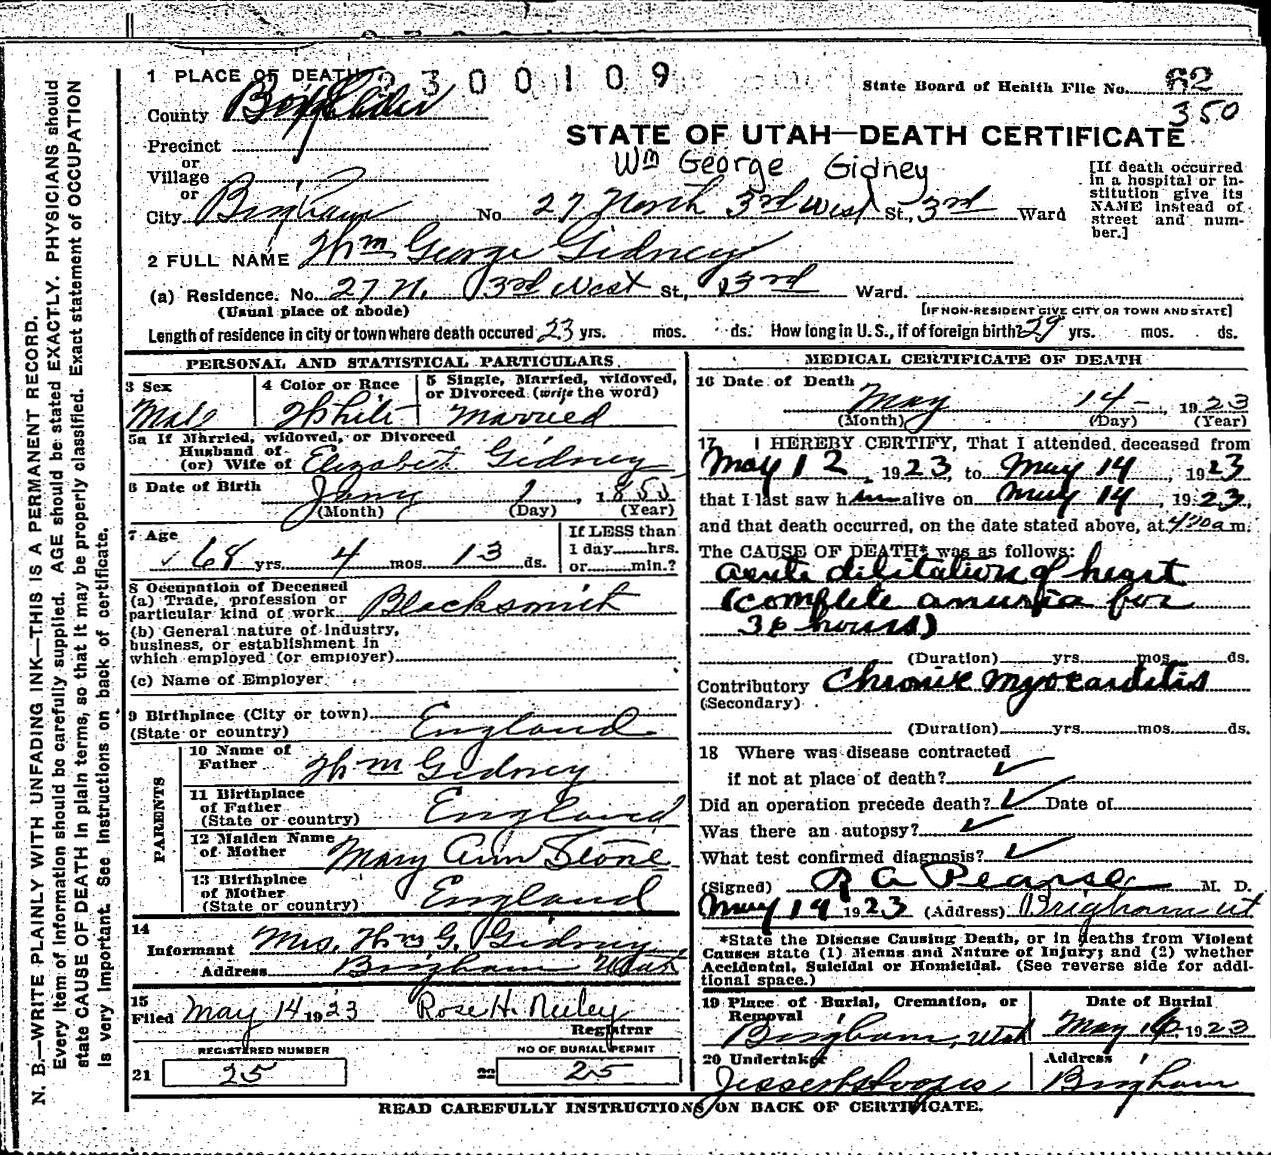 1 PLACE OF DEATH 2300109
State Board of Health File No. 62
350
County Box Elder
STATE OF UTAH—DEATH CERTIFICATE
Precinct
or
Village
or
Wm George Gidney
City Brigham No. 27 North 3rd West St., 3rd Ward
[If death occurred
in a hospital or in-
stitution give its
NAME instead of
street and num-
ber.]
2 FULL NAME Wm George Gidney
(a) Residence. No. 27 N. 3rd West St., 3rd Ward.
(Usual place of abode) [IF NON-RESIDENT GIVE CITY OR TOWN AND STATE]
Length of residence in city or town where death occured 23 yrs. mos. ds. How long in U.S., if of foreign birth? 29 yrs. mos. ds.
PERSONAL AND STATISTICAL PARTICULARS.
3 Sex
Male
4 Color or Race
White
5 Single, Married, widowed,
or Divorced (write the word)
Married
5a If Married, widowed, or Divorced
Husband of
(or) Wife of Elizabeth Gidney
6 Date of Birth Jany 1, 1855
(Month) (Day) (Year)
7 Age
68 yrs. 4 mos. 13 ds.
If LESS than
1 day hrs.
or min.?
8 Occupation of Deceased
(a) Trade, profession or
particular kind of work Blacksmith
(b) General nature of Industry,
business, or establishment in
which employed (or employer)
(c) Name of Employer
9 Birthplace (City or town)
(State or country) England
PARENTS
10 Name of
Father Wm Gidney
11 Birthplace
of Father
(State or country) England
12 Maiden Name
of Mother Mary Ann Stone
13 Birthplace
of Mother
(State or country) England
14
Informant Mrs. Wm G. Gidney
Address Brigham Utah
15
Filed May 14 1923 Rose H. Neeley
Registrar
REGISTERED NUMBER
21 25
NO OF BURIAL PERMIT
22 25
MEDICAL CERTIFICATE OF DEATH
16 Date of Death
May 14-, 1923
(Month) (Day) (Year)
17 I HEREBY CERTIFY, That I attended deceased from
May 12, 1923, to May 14, 1923
that I last saw him alive on May 14, 1923,
and that death occurred, on the date stated above, at 4:30 a m.
The CAUSE OF DEATH* was as follows:
acute dilitation of heart
(complete anuria for
36 hours)
(Duration) yrs. mos. ds.
Contributory Chronic myocarditis
(Secondary)
(Duration) yrs. mos. ds.
18 Where was disease contracted
if not at place of death? ✓
Did an operation precede death? ✓ Date of
Was there an autopsy? ✓
What test confirmed diagnosis? ✓
(Signed) R A Pearse M. D.
May 14 1923 (Address) Brigham ut
*State the Disease Causing Death, or in deaths from Violent
Causes state (1) Means and Nature of Injury; and (2) whether
Accidental, Suicidal or Homicidal. (See reverse side for addi-
tional space.)
19 Place of Burial, Cremation, or
Removal
Brigham, Utah
Date of Burial
May 16, 1923
20 Undertaker
Address
Brigham
READ CAREFULLY INSTRUCTIONS ON BACK OF CERTIFICATE.
N. B.—WRITE PLAINLY WITH UNFADING INK—THIS IS A PERMANENT RECORD.
Every item of information should be carefully supplied. AGE should be stated EXACTLY. PHYSICIANS should
state CAUSE OF DEATH in plain terms, so that it may be properly classified. Exact statement of OCCUPATION
is very important. See instructions on back of certificate.